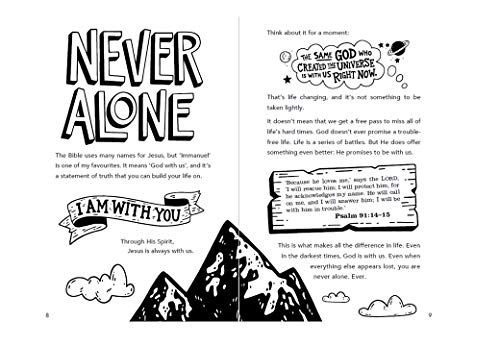 NEVER
ALONE
The Bible uses many names for Jesus, but 'Immanuel'
is one of my favourites. It means 'God with us', and it's
a statement of truth that you can build your life on.
I AM WITH YOU
Through His Spirit,
Jesus is always with us.
8
Think about it for a moment:
THE SAME GOD WHO
CREATED THE UNIVERSE
IS WITH US RIGHT NOW.
That's life changing, and it's not something to be
taken lightly.
It doesn't mean that we get a free pass to miss all of
life's hard times. God doesn't ever promise a trouble-
free life. Life is a series of battles. But He does offer
something even better: He promises to be with us.
'Because he loves me,' says the LORD,
'I will rescue him; I will protect him, for
he acknowledges my name. He will call
on me, and I will answer him; I will be
with him in trouble.'
Psalm 91:14-15
This is what makes all the difference in life. Even
in the darkest times, God is with us. Even when
everything else appears lost, you are
never alone. Ever.
9